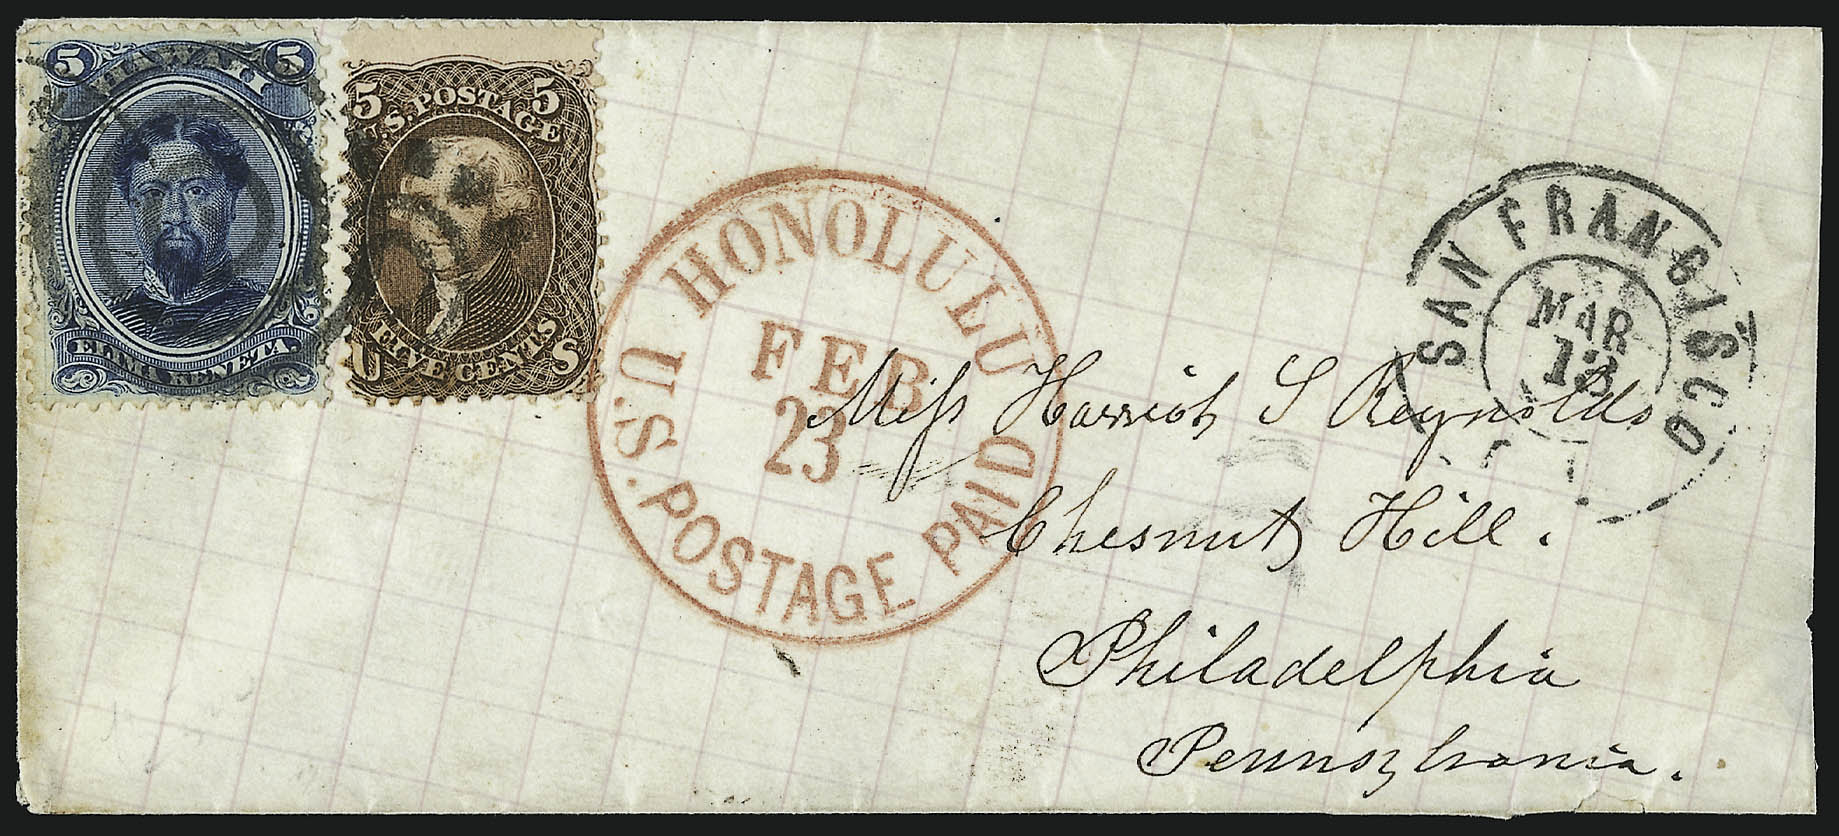 5 HAWAII 5
ELIMA KENETA.
5 U.S. POSTAGE 5
U FIVE CENTS S
HONOLULU
FEB
23
U.S. POSTAGE PAID
SAN FRANCISCO
MAR
13
Miss Harriot S Reynolds
Chesnut Hill.
Philadelphia
Pennsylvania.